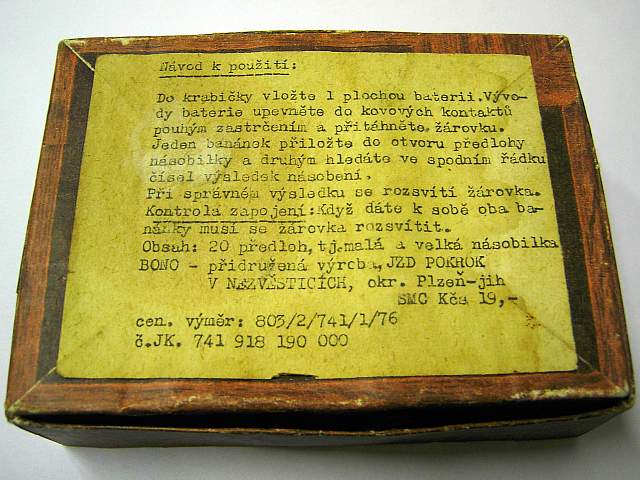 Návod k použití:
Do krabičky vložte 1 plochou baterii. Vývo-
dy baterie upevněte do kovových kontaktů
pouhým zastrčením a přitáhněte žárovku.
Jeden banánek přiložte do otvoru předlohy
násobilky a druhým hledáte ve spodním řádku
čísel výsledek násobení.
Při správném výsledku se rozsvítí žárovka.
Kontrola zapojení: Když dáte k sobě oba ba-
nánky musí se žárovka rozsvítit.
Obsah: 20 předloh, tj. malá a velká násobilka
BONO - přidružená výroba, JZD POKROK
V NEZVĚSTICÍCH, okr. Plzeň-jih
SMC Kčs 19,-
cen. výměr: 803/2/741/1/76
č.JK. 741 918 190 000